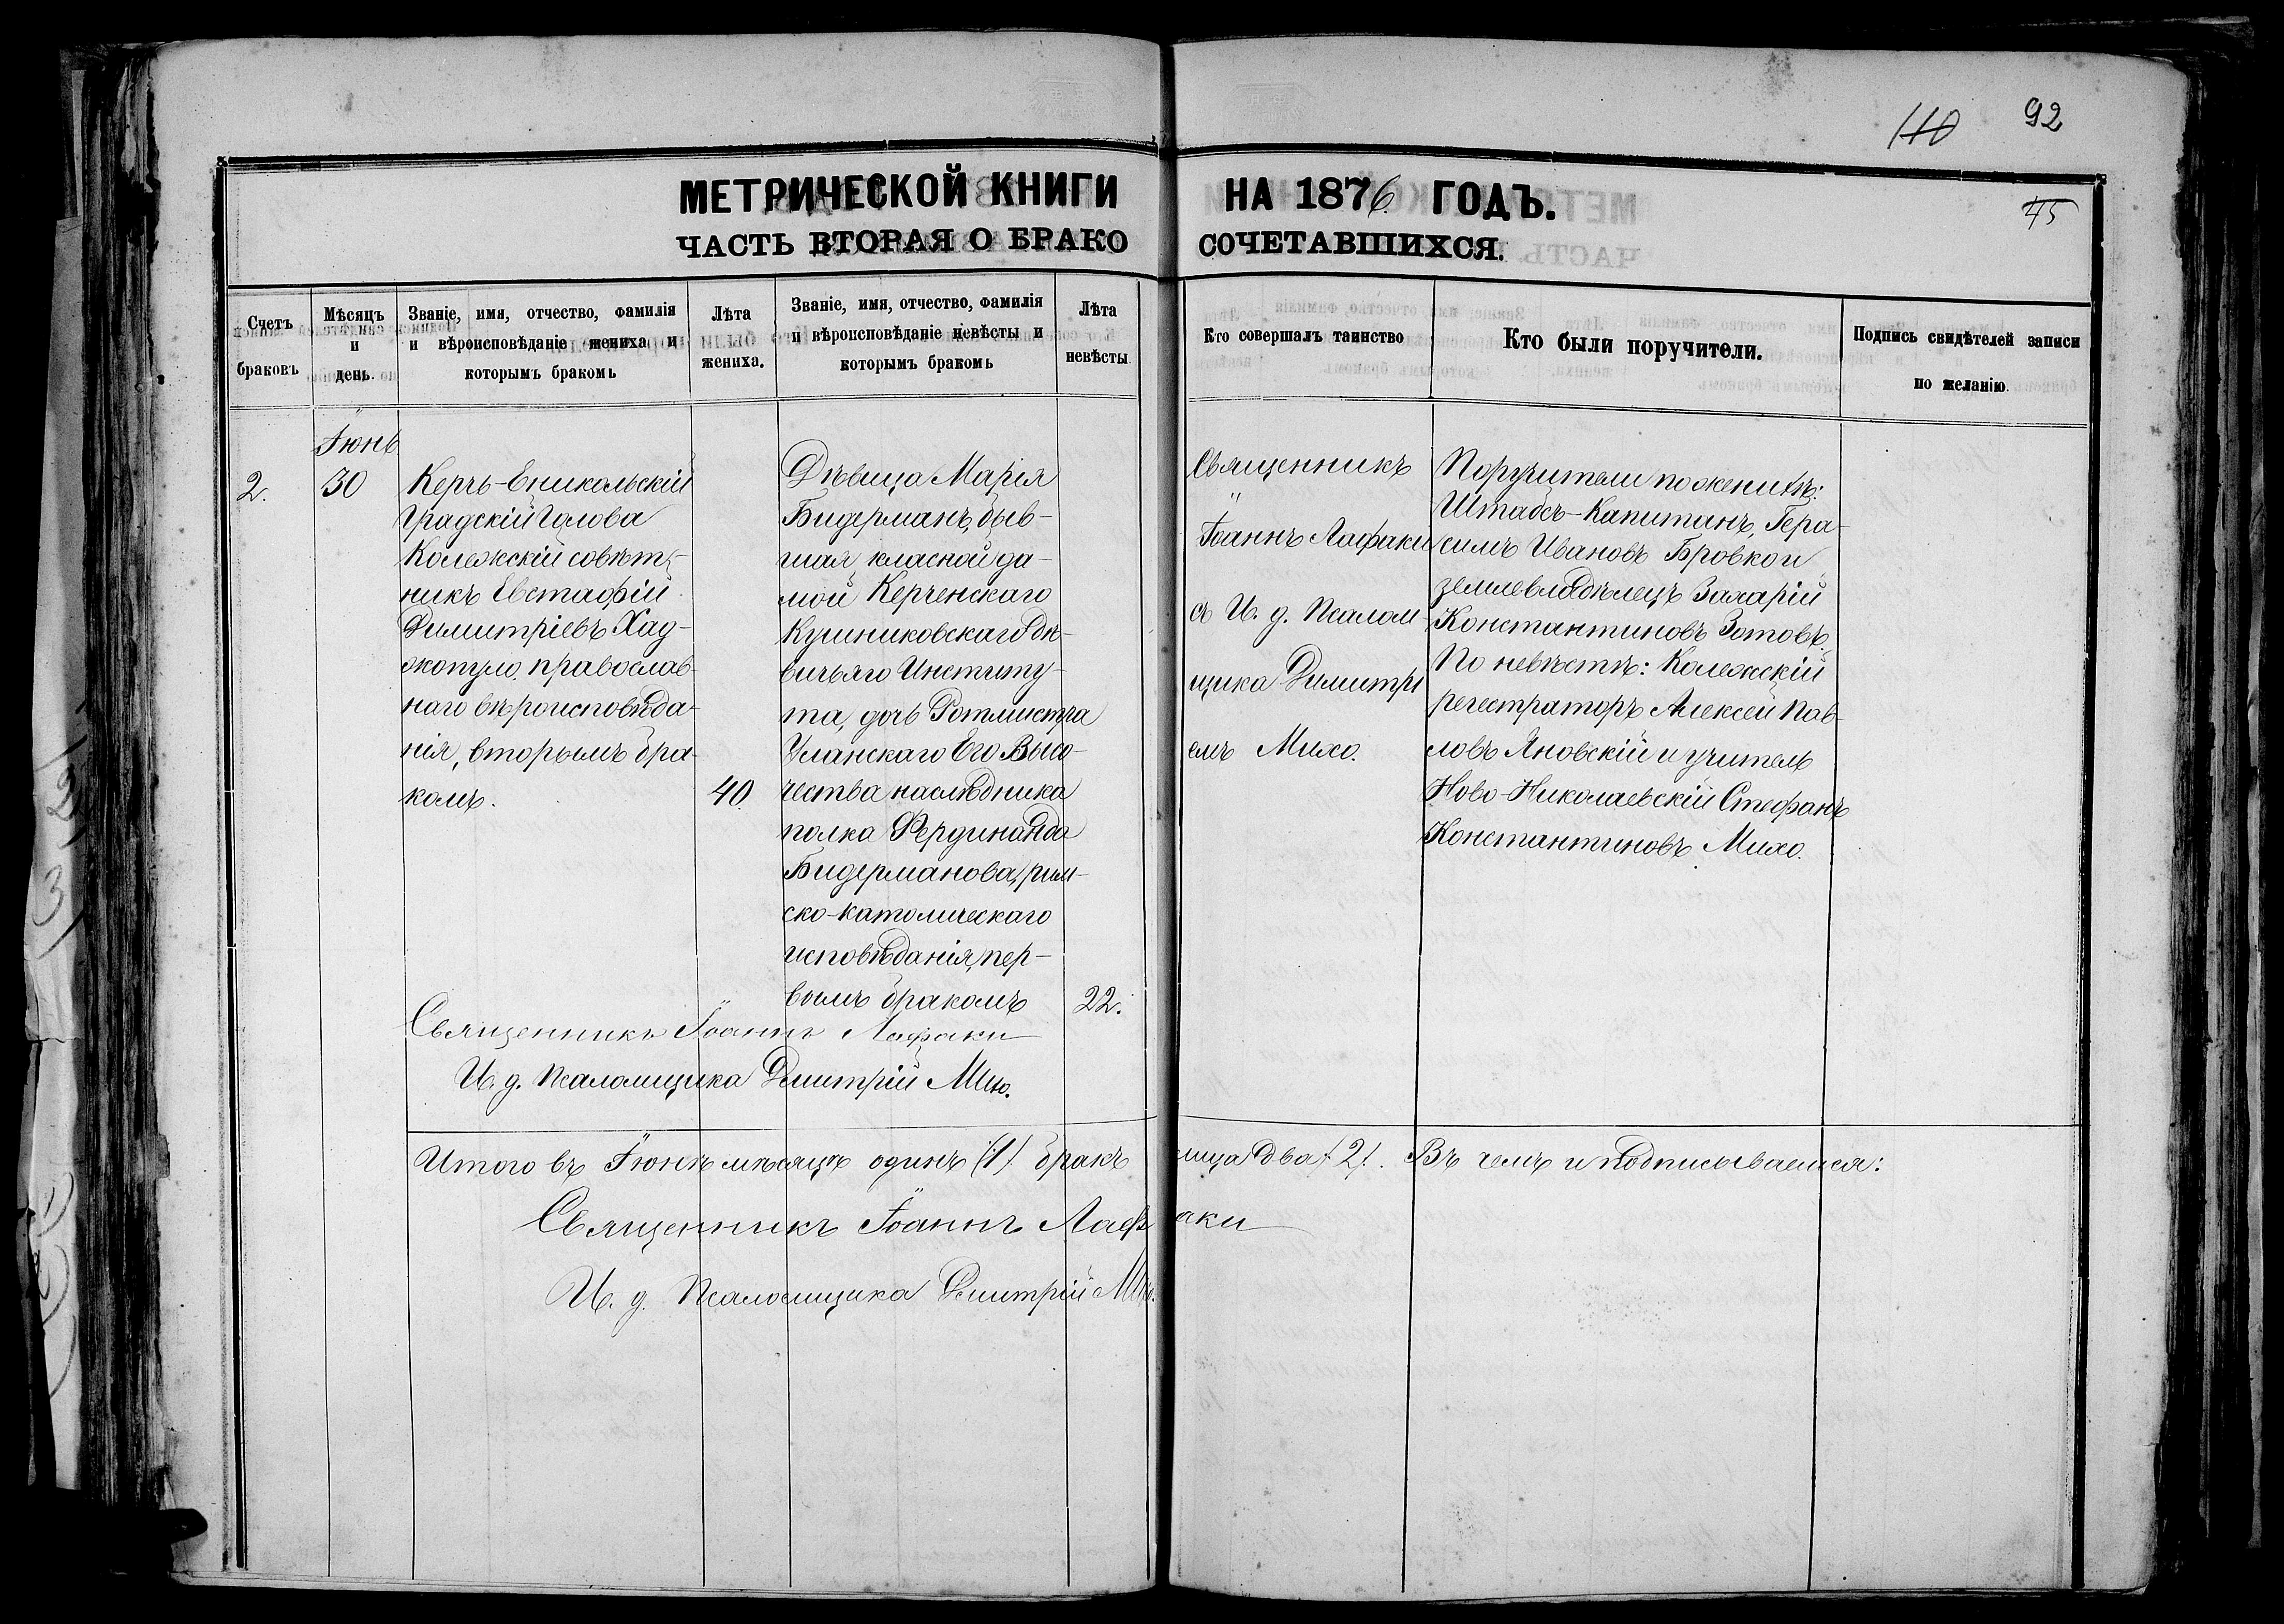 110 92
МЕТРИЧЕСКОЙ КНИГИ НА 1876 ГОДЪ.
45
ЧАСТЬ ВТОРАЯ О БРАКОСОЧЕТАВШИХСЯ.
Счетъ
браковъ
Мѣсяцъ
и
день.
Званіе, имя, отчество, фамилія
и вѣроисповѣданіе жениха и
которымъ бракомъ
Лѣта
жениха.
Званіе, имя, отчество, фамилія
и вѣроисповѣданіе невѣсты и
которымъ бракомъ
Лѣта
невѣсты.
Кто совершалъ таинство
Кто были поручители.
Подпись свидѣтелей записи
по желанію.
2.
Іюнь
30
Керчь-Еникольскій
Градскій Голова
Колежскій совѣт-
никъ Евстафій
Димитріевъ Хад-
жопуло, православ-
наго вѣроисповѣда-
нія, вторымъ бра-
комъ.
40
Дѣвица Марія
Бидерманъ, быв-
шая класной да-
мой Керченскаго
Кушниковскаго дѣ-
вичьяго Институ-
та, дочь Ротмистра
Уланскаго Его Высо-
чества наслѣдника
полка Фердинанда
Бидерманова, рим-
ско-католическаго
исповѣданія, пер-
вымъ бракомъ
22.
Священникъ
Іоаннъ Лафаки
съ И. д. Псалом-
щика Димитрі
емъ Михо.
Поручители по женихѣ:
Штабсъ-Капитанъ, Гера-
симъ Ивановъ Бровко и
землевладѣлецъ Захарій
Константиновъ Зотовъ.
По невѣстѣ: Колежскій
регестраторъ Алексей Пав-
ловъ Яновскій и учитель
Ново-Николаевскій Стефанъ
Константиновъ Михо.
Священникъ Іоаннъ Лафаки
И. д. Псаломщика Дмитрій Михо.
Итого въ Іюнѣ мѣсяцѣ одинъ (1) бракъ лица два (2). Въ чемъ и подписываемся:
Священникъ Іоаннъ Лафаки
И. д. Псаломщика Дмитрій Михо.